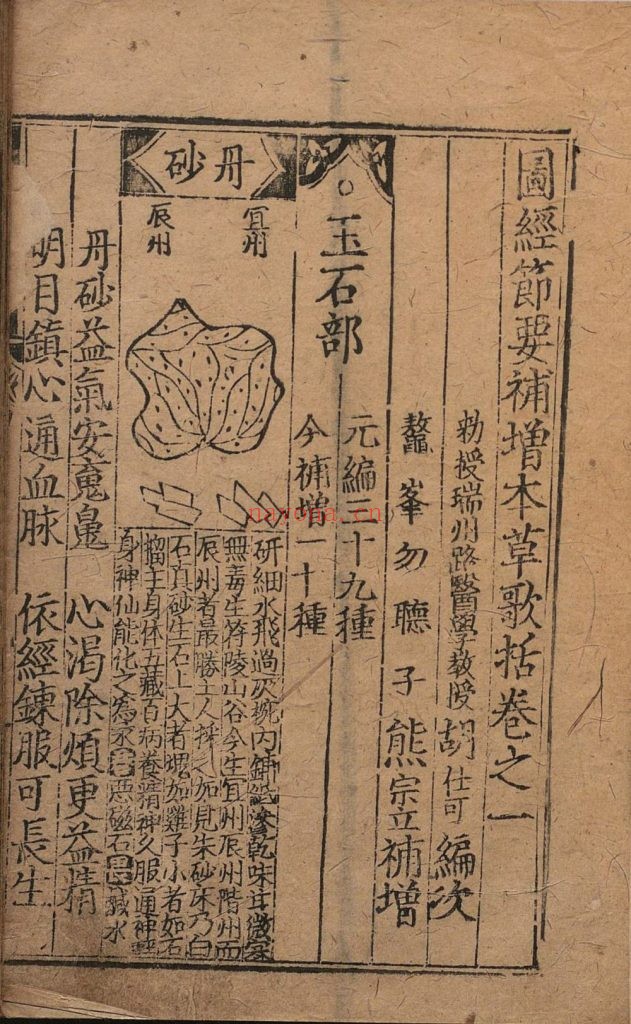 圖經節要補增本草歌括卷之一
勑授瑞州路醫學教授胡仕可編次
鼇峯勿聽子熊宗立補增
玉石部
元編三十九種
今補增一十種
丹砂
宜州
辰州
研細水飛過灰椀內鋪紙滲乾味甘微寒
無毒生符陵山谷今生宜州辰州階州而
辰州者最勝土人採之加見朱砂床乃白
石真砂生石上大者塊如雞子小者如石
榴主身体五藏百病養精神久服通神
身神仙能化之為汞惡磁石畏鹹水
丹砂益氣安䰟
心渴除煩更益精
明目鎮心通血脉
依經鍊服可長生
nayona.cn